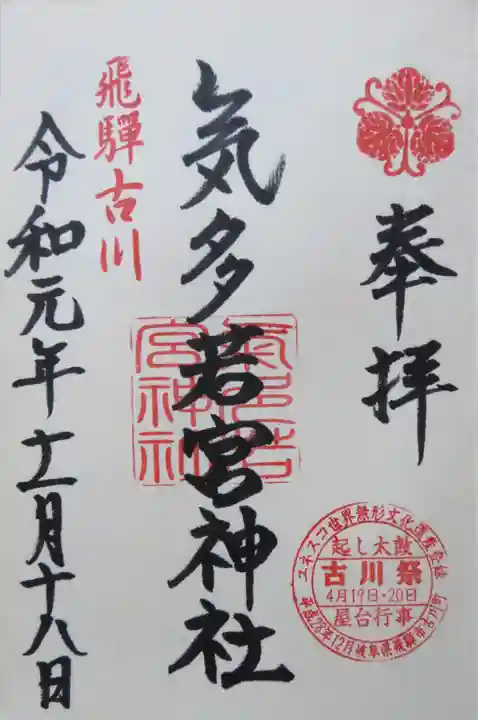 奉拝
気多若宮神社
氣多若宮神社
飛騨古川
令和元年十一月十八日
ユネスコ世界無形文化遺産登録
起し太鼓
古川祭
4月19日・20日
屋台行事
平成28年12月岐阜県飛騨市古川町